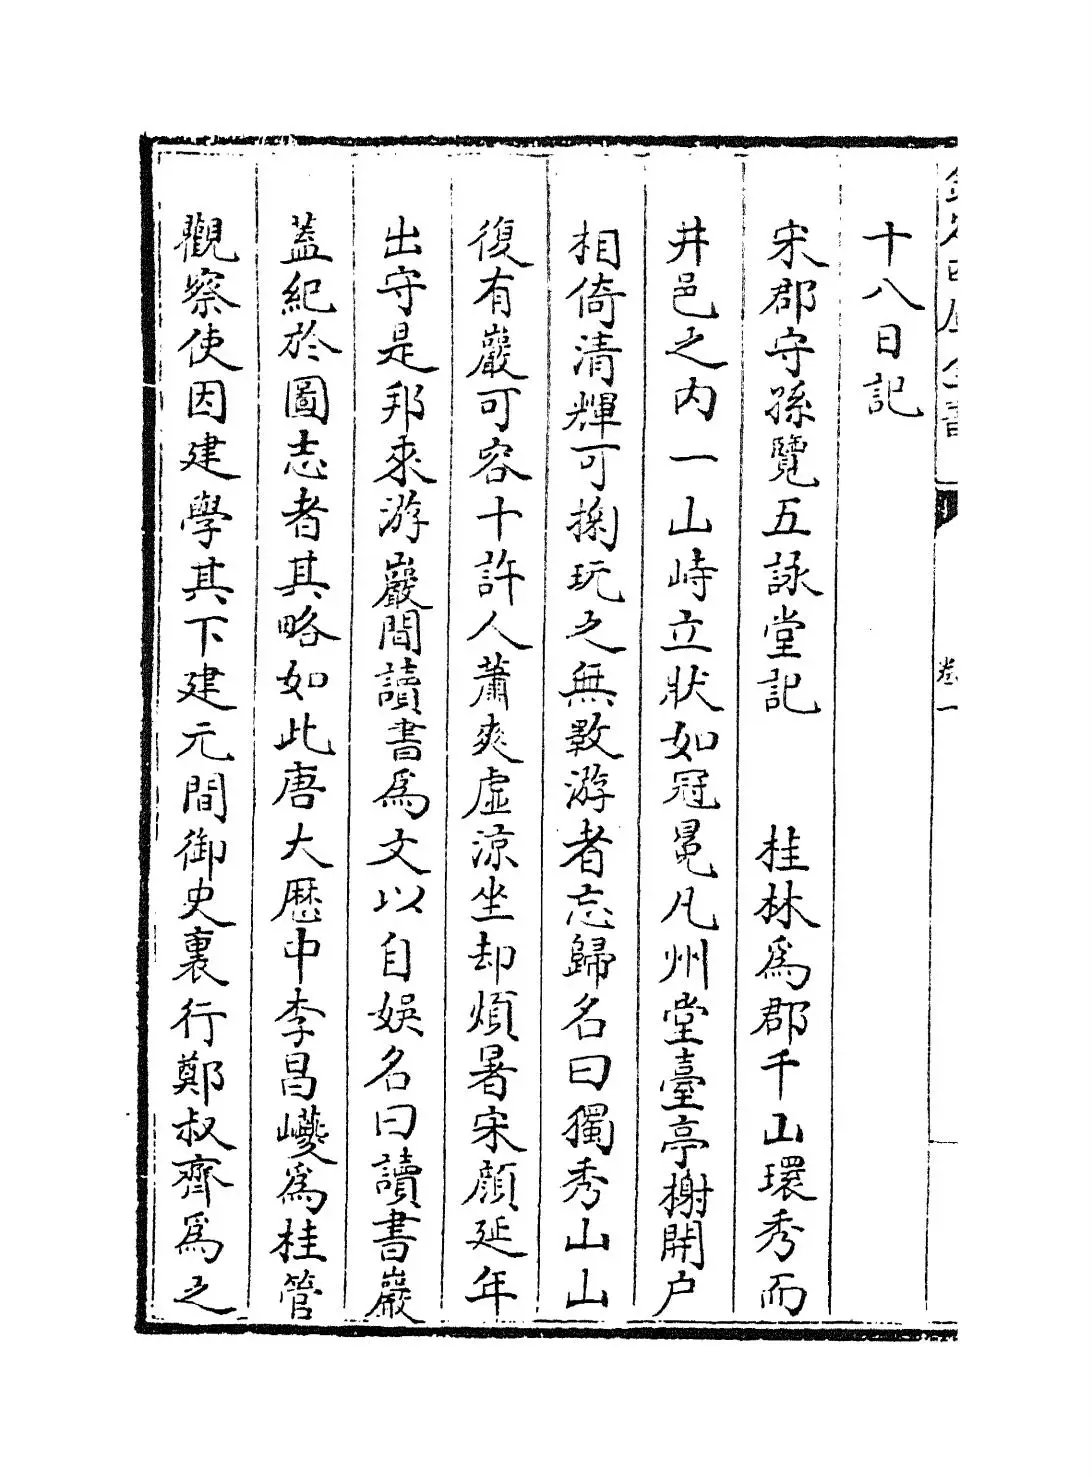 十八日記
宋郡守孫覽五詠堂記　桂林爲郡千山環秀而
井邑之内一山峙立狀如冠冕凡州堂臺亭榭開户
相倚清輝可掬玩之無斁游者忘歸名曰獨秀山山
復有巖可容十許人蕭爽虛涼坐却煩暑宋顔延年
出守是邦來游巖間讀書爲文以自娛名曰讀書巖
蓋紀於圖志者其略如此唐大歷中李昌巙爲桂管
觀察使因建學其下建元間御史裏行鄭叔齊爲之
卷一